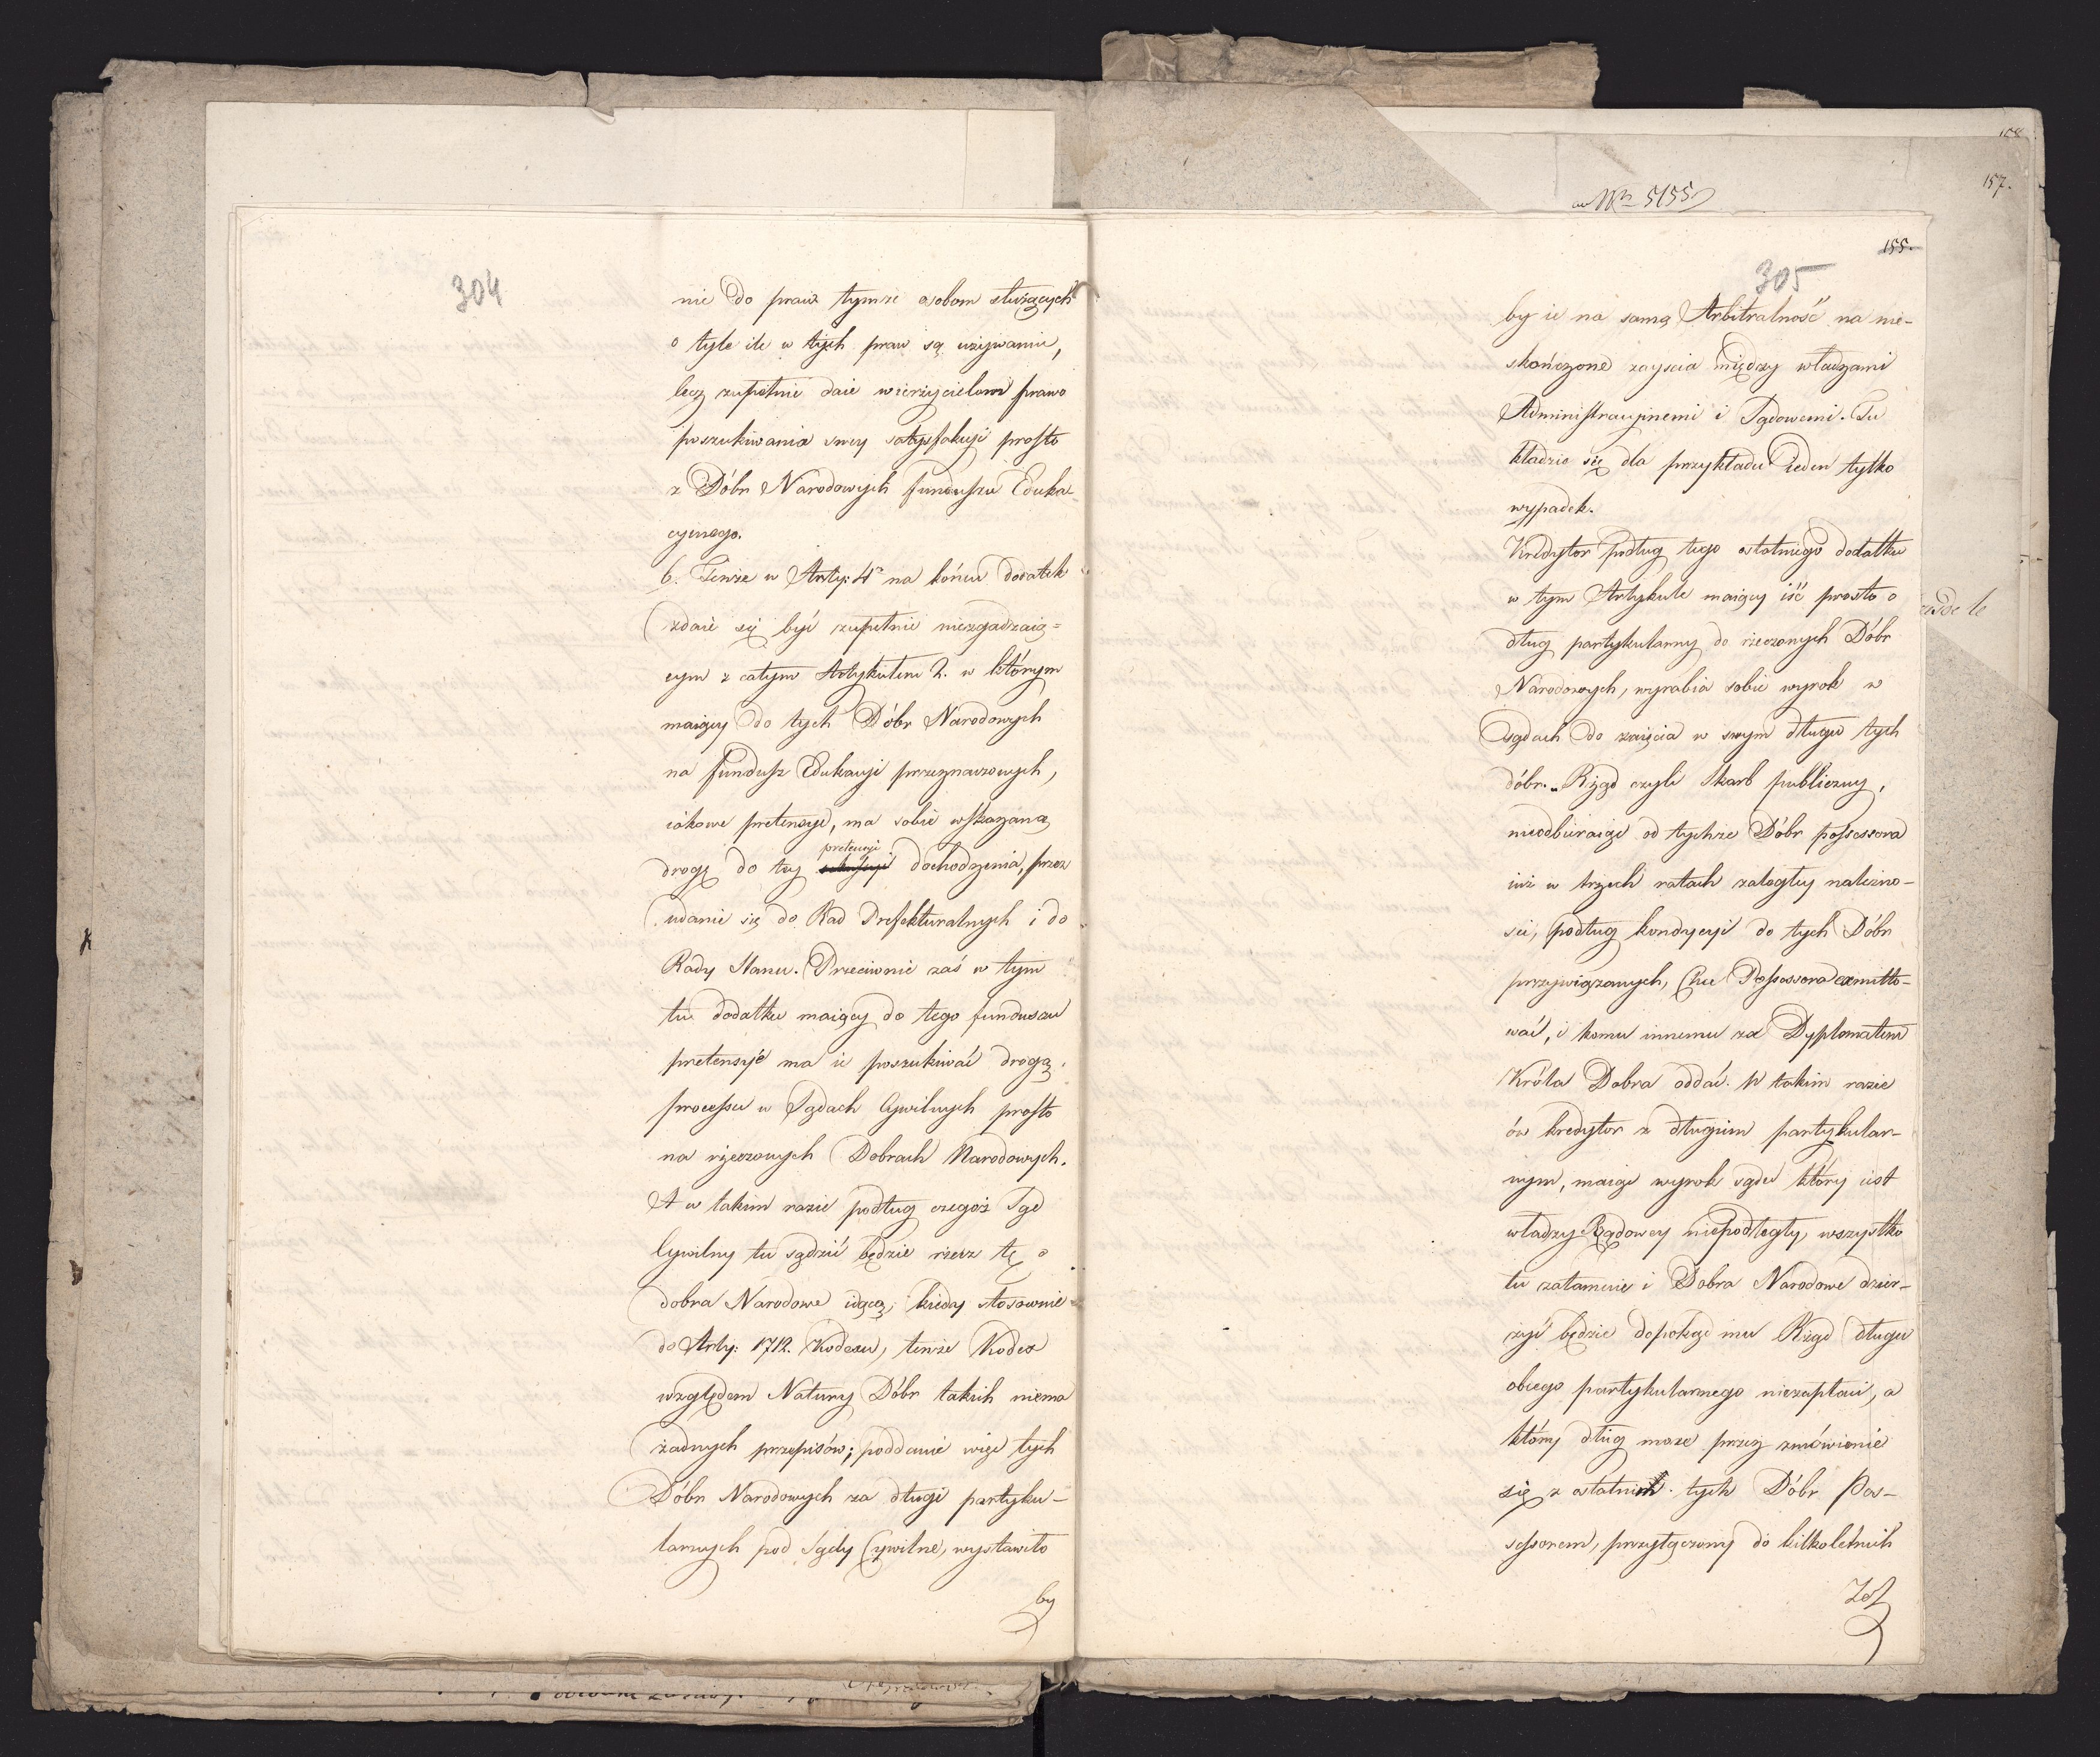 304
nie do praw tymże osobom służących
o tyle ile w tych praw są używaniu,
lecz zupełnie daie wierzycielom prawo
poszukiwania swey satysfakcyi prosto
z Dóbr Narodowych funduszu Eduka-
cyinego.
6. Tenże w Arty: 4º na końcu dodatek
zdaie się być zupełnie niezgadzaią=
cym z całym Artykułem 2. w którym
maiący do tych Dóbr Narodowych
na fundusz Edukacyi przeznaczonych,
iakowe pretensye, ma sobie wskazaną
pretensyi
drogę do tey dochodzenia, przez
udanie się do Rad Prefekturalnych i do
Rady Stanu. Przeciwnie zaś w tym
tu dodatku maiący do tego funduszu
pretensyie ma ie poszukiwać drogą
processu w Sądach Cywilnych prosto
na rzeczonych Dobrach Narodowych.
A w takim razie podług czegoż Sąd
Cywilny tu sądzić będzie rzecz tę o
dobra Narodowe idącą, kiedy stosownie
do Arty: 1712. Kodexu, tenże Kodex
względem Natury Dóbr takich niema
żadnych przepisów; poddanie więc tych
Dóbr Narodowych za długi partyku-
larnych pod Sądy Cywilne, wystawiło
by
Nro 5155
158
157.
155.
305
by ie na samą Arbitralność na nie-
skończone zayścia między władzami
Administracyinemi i Sądowemi. Tu
kładzie się dla przykładu ieden tylko
wypadek.
Kredytor podług tego ostatniego dodatku
w tym Artykule maiący iść prosto o
dług partykularny do rzeczonych Dóbr
Narodowych, wyrabia sobie wyrok w
Sądach do zaięcia w swym długu tych
dóbr. Rząd czyli Skarb publiczny,
nieodbieraiąc od tychże Dóbr possessora
iuż w trzech ratach zaległey należno-
ści, podług kondycyi do tych Dóbr
przywiązanych, chce Possessora exmitto-
wać, i komu innemu za Dyplomatem
Króla Dobra oddać. W takim razie
ów kredytor z długiem partykular-
nym, maiąc wyrok sądu który iest
władzy Rządowey niepodległy, wszystko
tu załamuie i Dobra Narodowe dzier-
żyć będzie dopokąd mu Rząd długu
obcego partykularnego niezapłaci, a
który dług może przez zmówienie
się z ostatnim tych Dóbr Pos-
sessorem, przyłączony do kilkoletnich
Zal